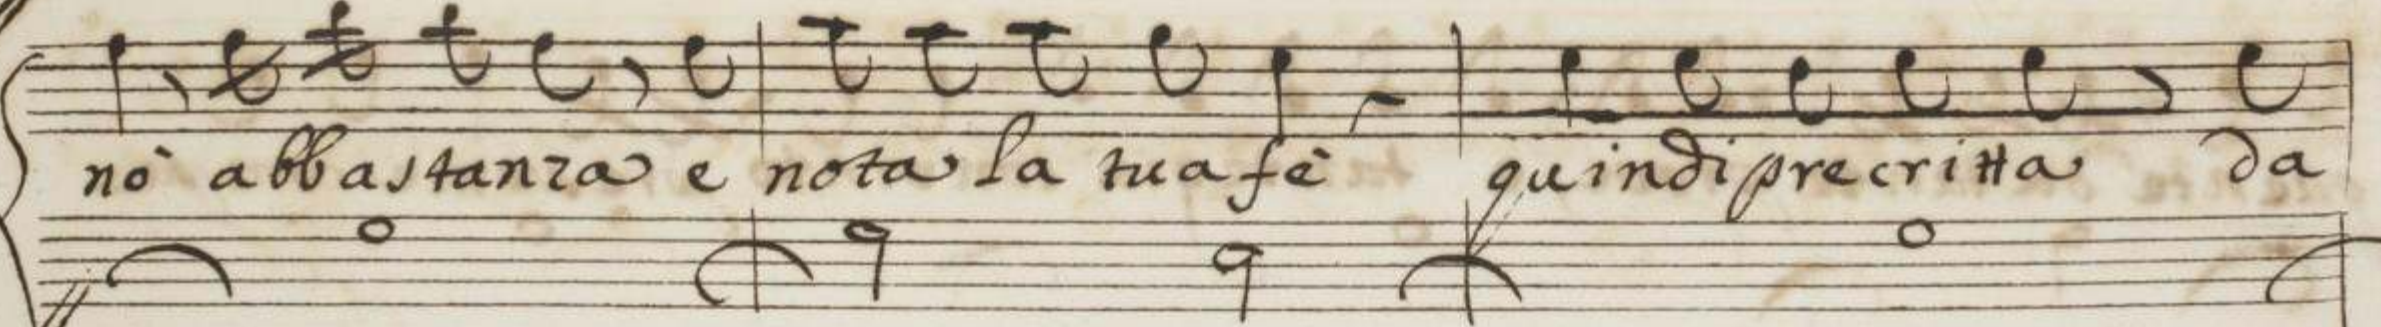 nò abbastanza e nota la tua fè quindi precritta da